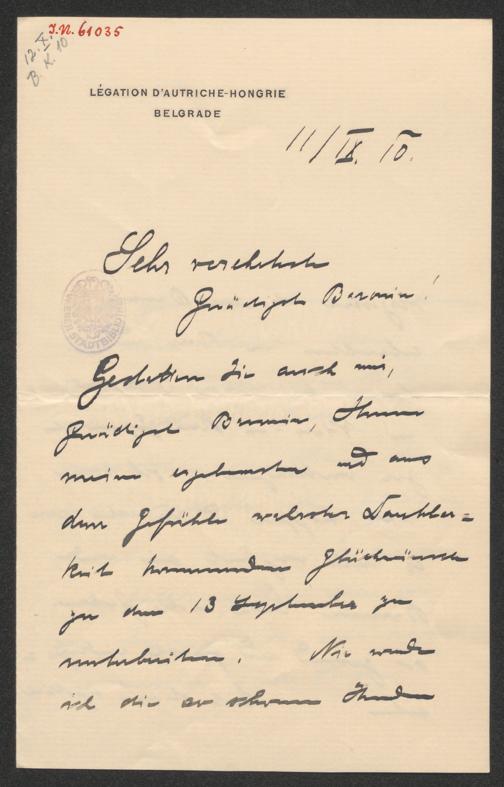 J.N. 61035
12. X.
B. K. 10
LÉGATION D'AUTRICHE-HONGRIE
BELGRADE
11/IX. 10.
Sehr verehrteste
Gnädigste Baronin!
Gestatten Sie auch mir,
Gnädigste Baronin, Ihnen
meine ergebensten und aus
dem Gefühle wahrster Dankbar=
keit kommenden Glückwünsche
zu dem 13 September zu
unterbreiten. Nie werde
ich die so schönen Stunden